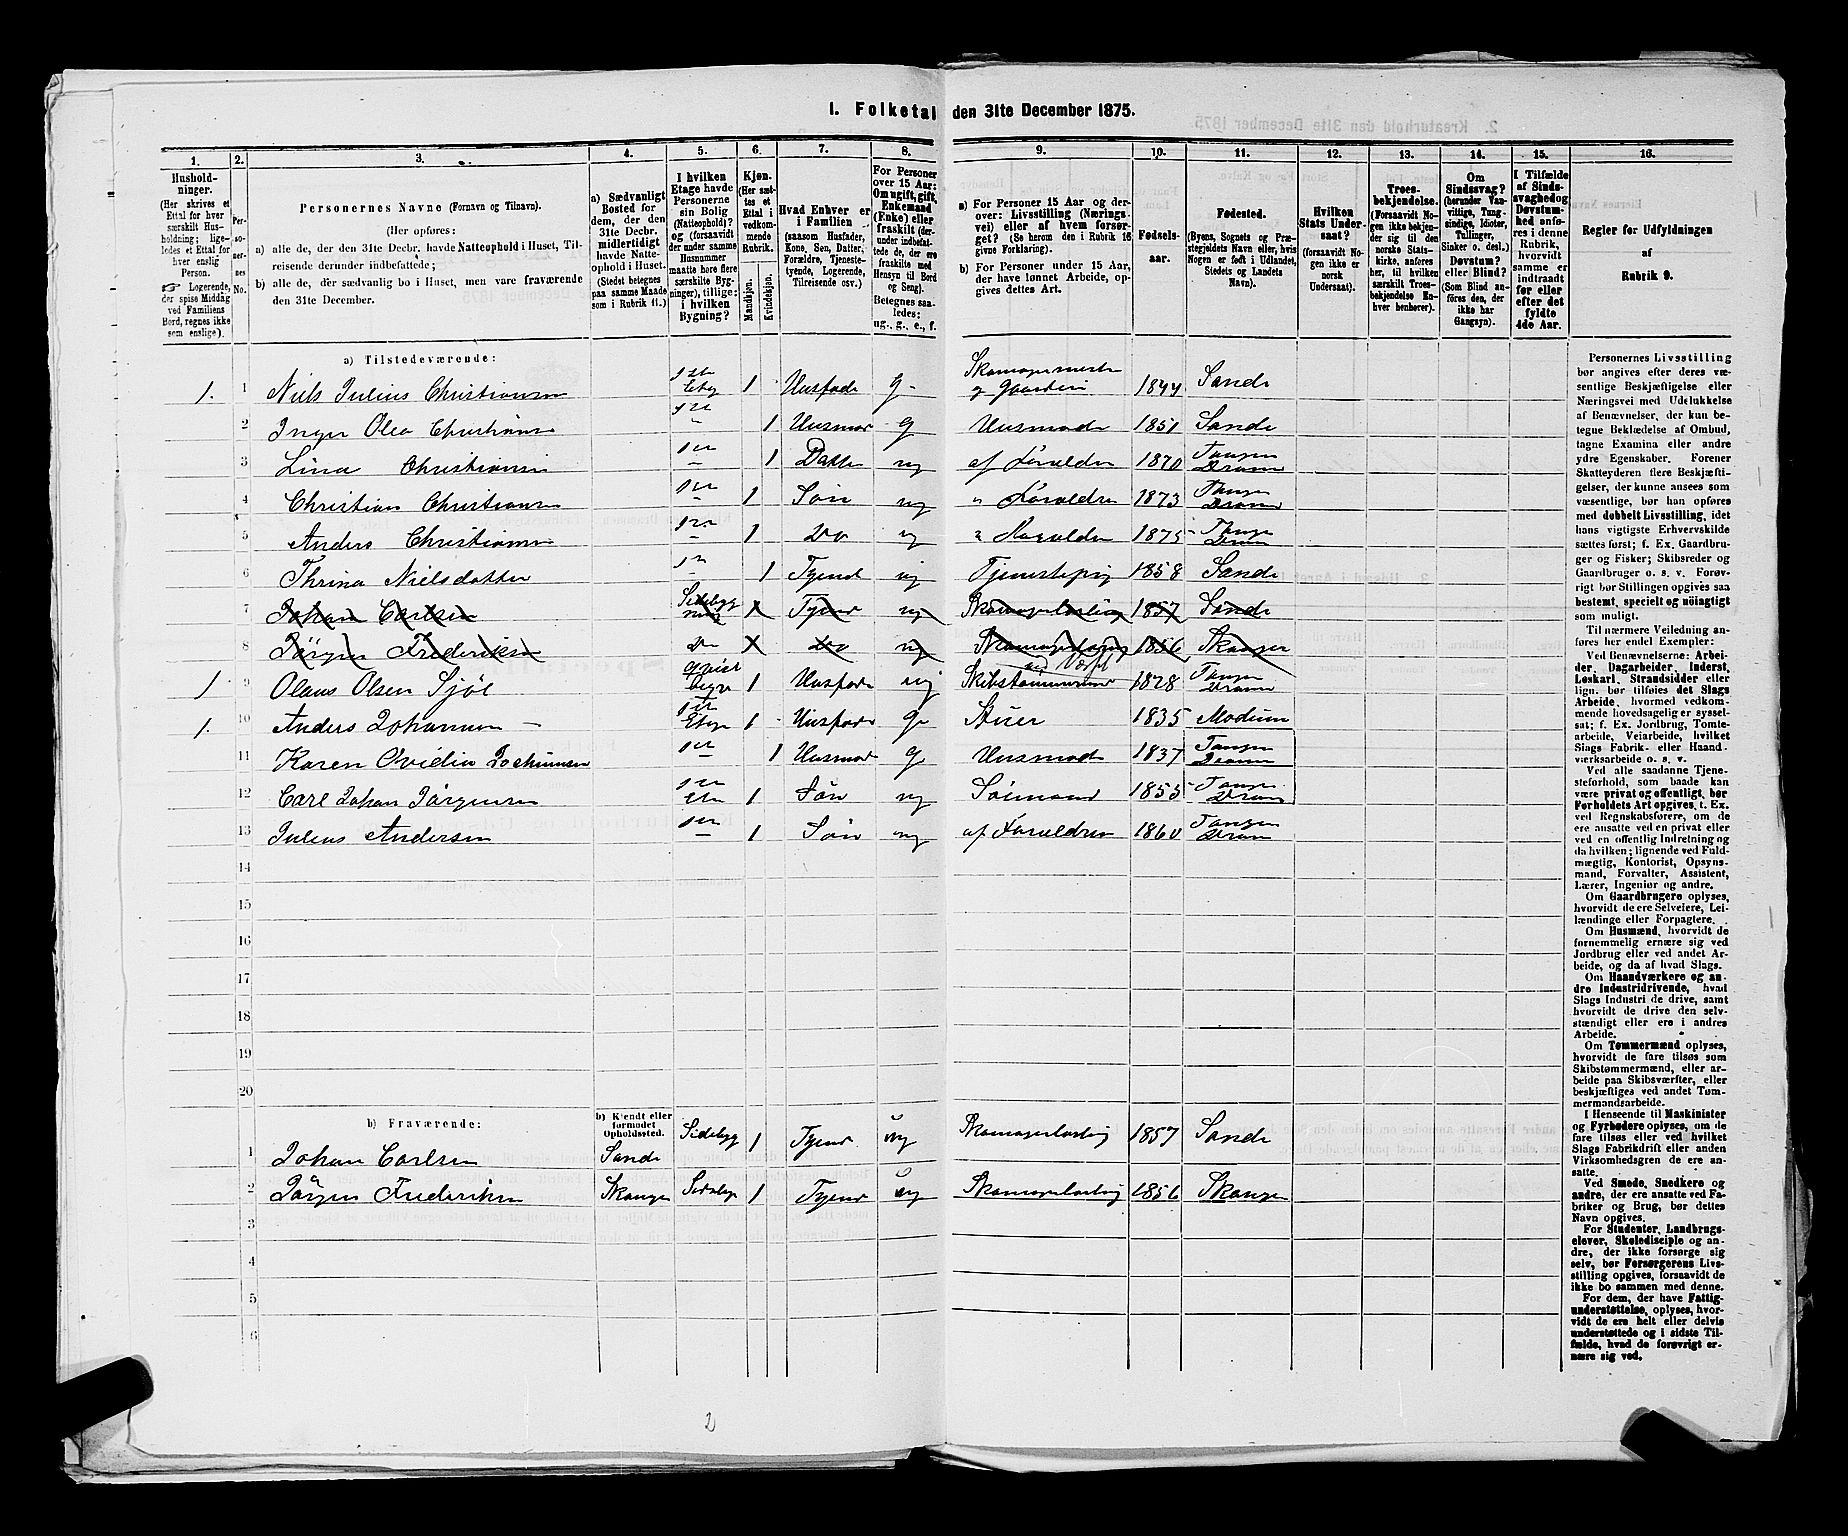 1. Folketal den 31te December 1875.
1. 2. 3. 4. 5. 6. 7. 8. 9. 10. 11. 12. 13. 14. 15. 16.
Hushold-
ninger.
(Her skrives et
Ettal for hver
særskilt Hus-
holdning; lige-
ledes et Ettal for
hver enslig
Person.
☞ Logerende,
der spise Middag
ved Familiens
Bord, regnes ikke
som enslige).
Per-
so-
ner-
nes
No.
Personernes Navne (Fornavn og Tilnavn).
(Her opføres:
a) alle de, der den 31te Decbr. havde Natteophold i Huset, Til-
reisende derunder indbefattede;
b) alle de, der sædvanlig bo i Huset, men vare fraværende
den 31te December.
a) Sædvanligt
Bosted for
dem, der den
31te Decbr.
midlertidigt
havde Natte-
ophold i Huset.
(Stedet betegnes
paa samme Maade
som i Rubrik 11.)
I hvilken
Etage havde
Personerne
sin Bolig
(Natteophold)?
og (forsaavidt
der under samme
Husnummer
maatte høre flere
særskilte Byg-
ninger), tillige:
i hvilken
Bygning?
Kjøn.
(Her sæt-
tes et
Ettal i
vedkom-
mende
Rubrik.
Mandkjøn.
Kvindekjøn.
Hvad Enhver er
i Familien
(saasom Husfader,
Kone, Søn, Datter,
Forældre, Tjeneste-
tyende, Logerende,
Tilreisende osv.)
For Personer
over 15 Aar:
Om ugift, gift,
Enkemand
(Enke) eller
fraskilt (der-
under indbefat-
tede de, der ere
fraskilte med
Hensyn til Bord
og Seng).
Betegnes saa-
ledes:
ug., g., e., f.
a) For Personer 15 Aar og der-
over: Livsstilling (Nærings-
vei) eller af hvem forsør-
get? (Se herom den i Rubrik 16
givne Forklaring).
b) For Personer under 15 Aar,
der have lønnet Arbeide, op-
gives dettes Art.
Fødsels-
aar.
Fødested.
(Byens, Sognets og Præ-
stegjeldets Navn eller, hvis
Nogen er født i Udlandet,
Stedets og Landets
Navn).
Hvilken
Stats Under-
saat?
(forsaavidt No-
gen ikke er
norsk
Undersaat).
Troes-
bekjendelse.
(Forsaavidt No-
gen ikke bekjen-
der sig til den
norske Stats-
kirke, anføres
her, til hvilken
særskilt Troes-
bekjendelse En-
hver henhører).
Om
Sindssvag?
(herunder Van-
vittige, Tung-
sindige, Idioter,
Tullinger,
Sinker o. desl.)
Døvstum?
eller Blind?
(Som Blind an-
føres den, der
ikke har
Gangsyn).
I Tilfælde
af Sinds-
svaghed og
Døvstum-
hed anfø-
res i denne
Rubrik,
hvorvidt
samme er
indtraadt
før eller
efter det
fyldte
4de Aar.
Regler for Udfyldningen
af
Rubrik 9.
a) Tilstedeværende:
1. 1 Niels Julius Christiansen 1ste Etag 1 Husfader G Skomagermester og Gaardeier 1844 Sande
2 Inger Olea Christiansen 1ste 1 Husmor G Husmoder 1851 Sande
3 Lina Christiansen 1ste 1 Datter ug af Forældre 1870 Tangen Dramm
4 Christian Christiansen 1ste 1 Søn ug " Forældre 1873 Tangen Dramm
5 Anders Christiansen 1ste 1 Do ug " Forældre 1875 Tangen Dramm
6 Thrina Nielsdatter 1ste 1 Tyend ug Tjenestepig 1858 Sande
7 Johan Carlsen Sidebyg 1 Tyend ug Skomagerlærling 1857 Sande
8 Jörgen Frederiksen Do 1 Do ug Skomagerlærling 1856 Skauger
1 9 Olaus Olsen Sjöl 1 Husfader ug Skibstømmermand ved Værft 1828 Tangen Dramm
1. 10 Anders Johannsen 1ste Etage 1 Husfader G Stuer 1835 Modum
11 Karen Ovidia Jochumsen 1ste 1 Husmor G Husmoder 1837 Tangen Dramm
12 Carl Johan Jörgensen 1ste 1 Søn ug Sømand 1855 Tangen Dramm
13 Julius Andersen 1ste 1 Søn ug af Forældre 1860 Tangen Dramm
14
15
16
17
18
19
20
b) Fraværende:
b) Kjendt eller
formodet
Opholdssted.
1 Johan Carlsen Sande Sidebyg 1 Tyend ug Skomagerlærling 1857 Sande
2 Jörgen Frederiksen Skauger Sidebyg 1 Tyend ug Skomagerlærling 1856 Skauger
3
4
5
6
Personernes Livsstilling
bør angives efter deres væ-
sentlige Beskjæftigelse eller
Næringsvei med Udelukkelse
af Benævnelser, der kun be-
tegne Beklædelse af Ombud,
tagne Examina eller andre
ydre Egenskaber. Forener
Skatteyderen flere Beskjæfti-
gelser, der kunne ansees som
væsentlige, bør han opføres
med dobbelt Livsstilling, idet
hans vigtigste Erhvervskilde
sættes først; f. Ex. Gaardbru-
ger og Fisker; Skibsreder og
Gaardbruger o. s. v. Forøv-
rigt bør Stillingen opgives saa
bestemt, specielt og nöiagtigt
som muligt.
Til nærmere Veiledning an-
føres her endel Exempler:
Ved Benævnelserne: Arbei-
der, Dagarbeider, Inderst,
Løskarl, Strandsidder eller
lign. bør tilføies det Slags
Arbeide, hvormed vedkom-
mende hovedsagelig er syssel-
sat; f. Ex. Jordbrug, Tomte-
arbeide, Veiarbeide, hvilket
Slags Fabrik- eller Haand-
værksarbeide o. s. v.
Ved alle saadanne Tjene-
steforhold, som baade kan
være privat og offentligt, bør
Forholdets Art opgives, t. Ex.
ved Regnskabsførere, om de
ere ansatte ved en privat eller
ved en offentlig Indretning og
da hvilken; lignende ved Fuld-
mægtig, Kontorist, Opsyns-
mand, Forvalter, Assistent,
Lærer, Ingeniør og andre.
Om Gaardbrugere oplyses,
hvorvidt de ere Selveiere, Lei-
lændinge eller Forpagtere.
Om Husmænd, hvorvidt de
fornemmelig ernære sig ved
Jordbrug eller ved andet Ar-
beide, og da af hvad Slags.
Om Haandværkere og an-
dre Industridrivende, hvad
Slags Industri de drive, samt
hvorvidt de drive den selv-
stændigt eller ere i andres
Arbeide.
Om Tømmermænd oplyses,
hvorvidt de fare tilsøs som
Skibstømmermænd, eller ar-
beide paa Skibsværfter, eller
beskjæftiges ved andet Tøm-
mermandsarbeide.
I Henseende til Maskinister
og Fyrbødere oplyses, om de
fare tilsøs eller ved hvilket
Slags Fabrikdrift eller anden
Virksomhedsgren de ere an-
satte.
Ved Smede, Snedkere og
andre, der ere ansatte ved Fa-
briker og Brug, bør dettes
Navn opgives.
For Studenter, Landbrugs-
elever, Skoledisciple og an-
dre, der ikke forsørge sig
selv, bør Forsørgerens Livs-
stilling opgives, forsaavidt de
ikke bo sammen med denne.
For dem, der have Fattig-
understøttelse, oplyses, hvor-
vidt de ere helt eller delvis
understøttede og i sidste Til-
fælde, hvad de forøvrigt er-
nære sig ved.
2